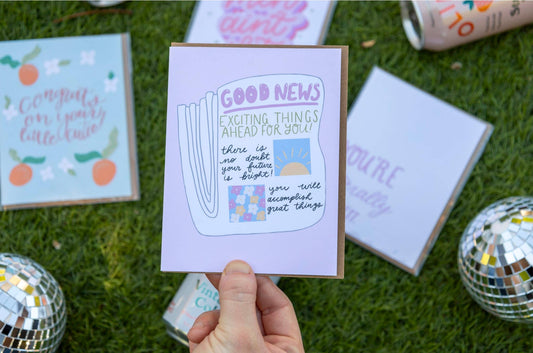 GOOD NEWS
EXCITING THINGS
AHEAD FOR YOU!
there is
no doubt
your future
is bright!
you will
accomplish
great things
Congrats
on your
little cutie!
aunt
YOU'RE